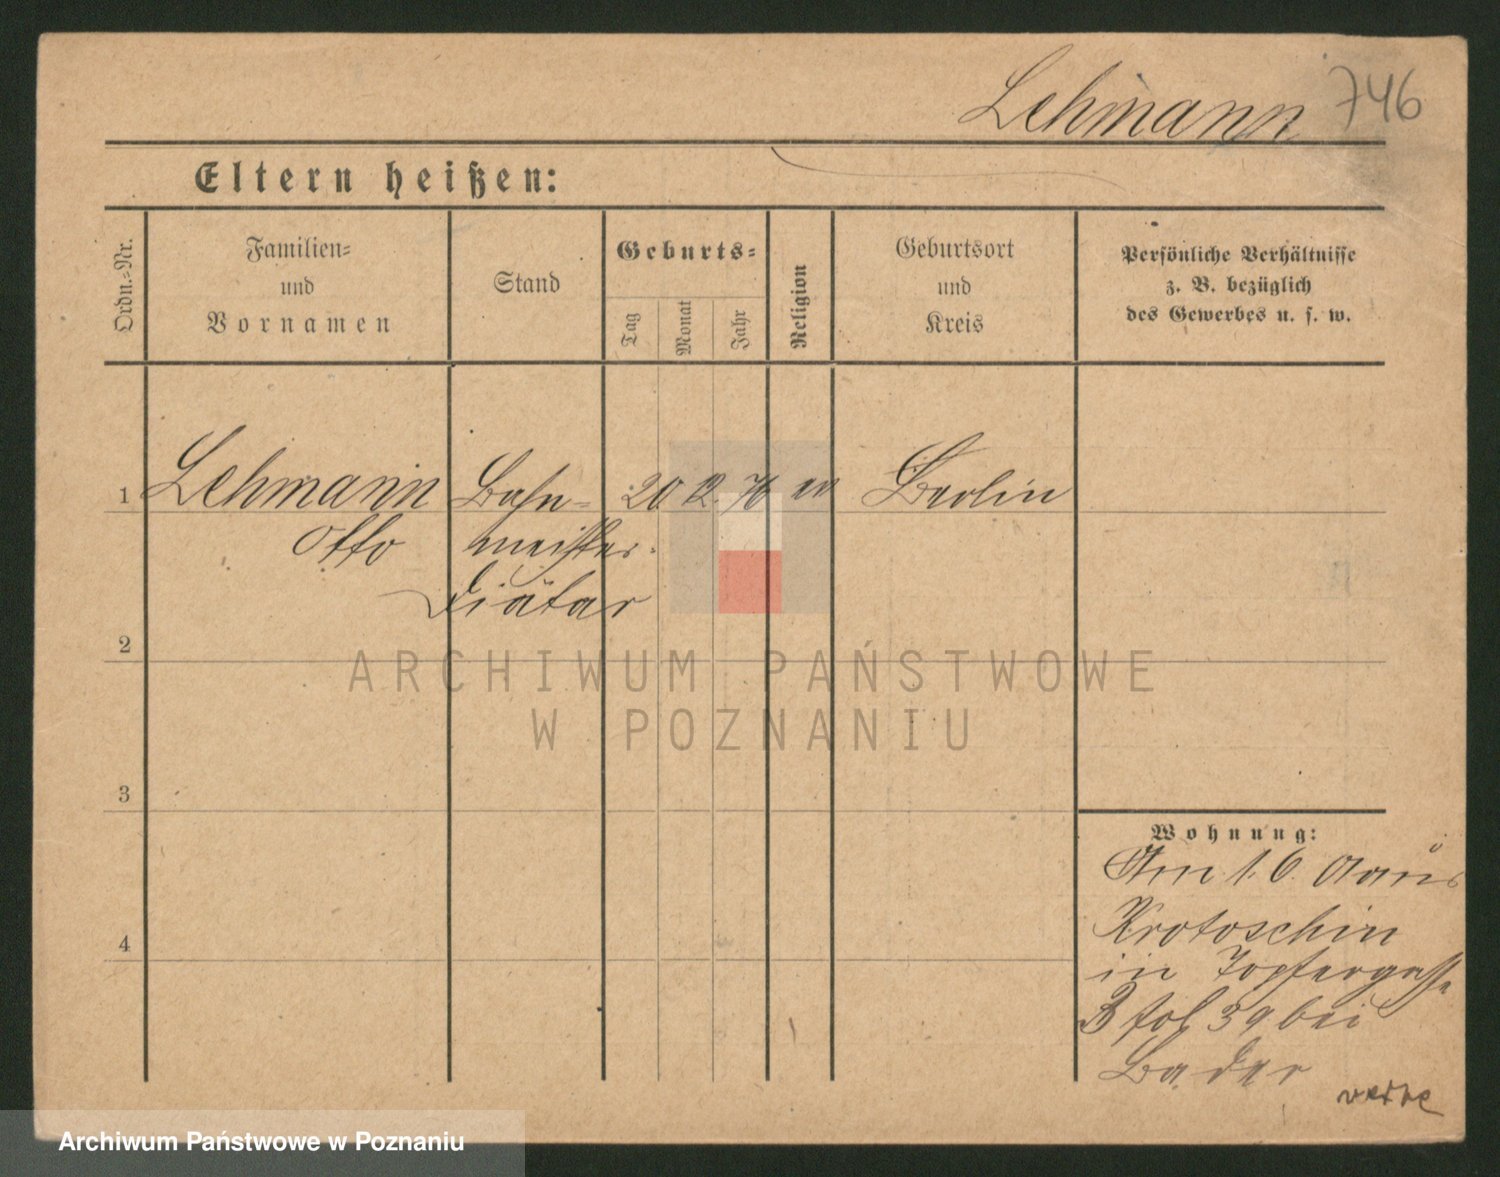 Lehmann 746
Eltern heißen:
Ordn.=Nr.
Familien=
und
Vornamen
Stand
Geburts=
Tag
Monat
Jahr
Religion
Geburtsort
und
Kreis
Persönliche Verhältnisse
z. B. bezüglich
des Gewerbes u. s. w.
1 Lehmann Bahn= 20 12. 76 ev Berlin
Otto meister.
Diätar
2
3
4
Wohnung:
Am 1.6.
Krotoschin
in Topfergasse
39 bei
Bader
ARCHIWUM PAŃSTWOWE
W POZNANIU
Archiwum Państwowe w Poznaniu